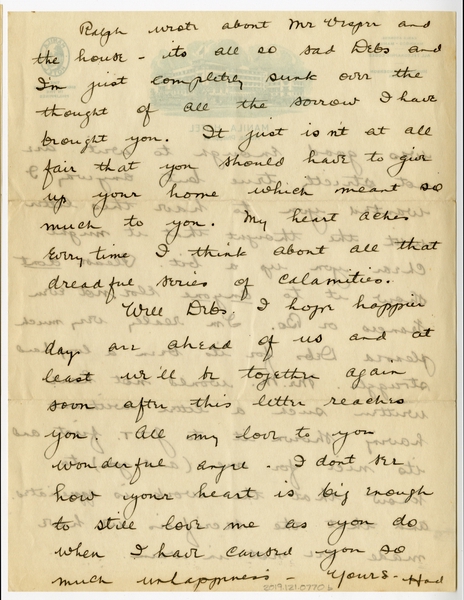 Ralph wrote about Mr Vesper and
the house - its all so sad Debs and
I'm just completely sunk over the
thought of all the sorrow I have
brought you. It just isn't at all
fair that you should have to give
up your home which meant so
much to you. My heart aches
every time I think about all that
dreadful series of calamities.
Well Debs, I hope happier
days are ahead of us and at
least we'll be together again
soon after this letter reaches
you. All my love to you
wonderful angel. I dont see
how your heart is big enough
to still love me as you do
when I have caused you so
much unhappiness - Yours - Had
2019.121.0770b